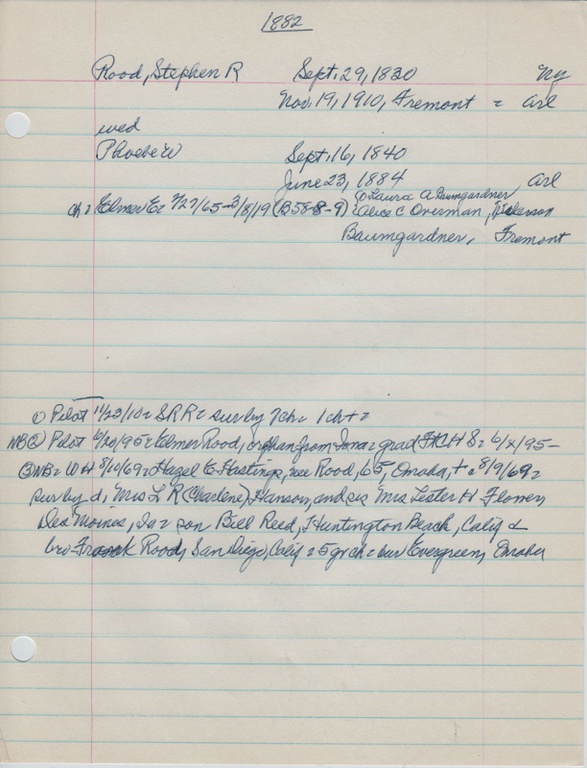 1882
Rood, Stephen R Sept. 29, 1830 NY
Nov. 19, 1910, Fremont = Arl
wed
Phoebe W Sept. 16, 1840
June 23, 1884 Arl
ch = Elmer E = 7/27/65-3/8/19 (B58-8-9) Laura A Baumgardner
Alice C Overman, Nickerson
Baumgardner, Fremont
① Pilot 11/23/10 = SRR = sur by 7ch = 1ch + =
NB② Pilot 6/20/95 = Elmer Rood, orphan from Iowa = grad 6/x/95-
③ NB = WH 8/10/69 = Hazel E Hastings, nee Rood, 65, Omaha, + = 8/9/69 =
sur by d, Mrs L R (Charlene) Hanson, and sis Mrs Lester H Flowers,
Des Moines, Ia = son Bill Reed, Huntington Beach, Calif &
bro Frank Rood, San Diego, Calif = 5 gr ch = bur Evergreen, Omaha